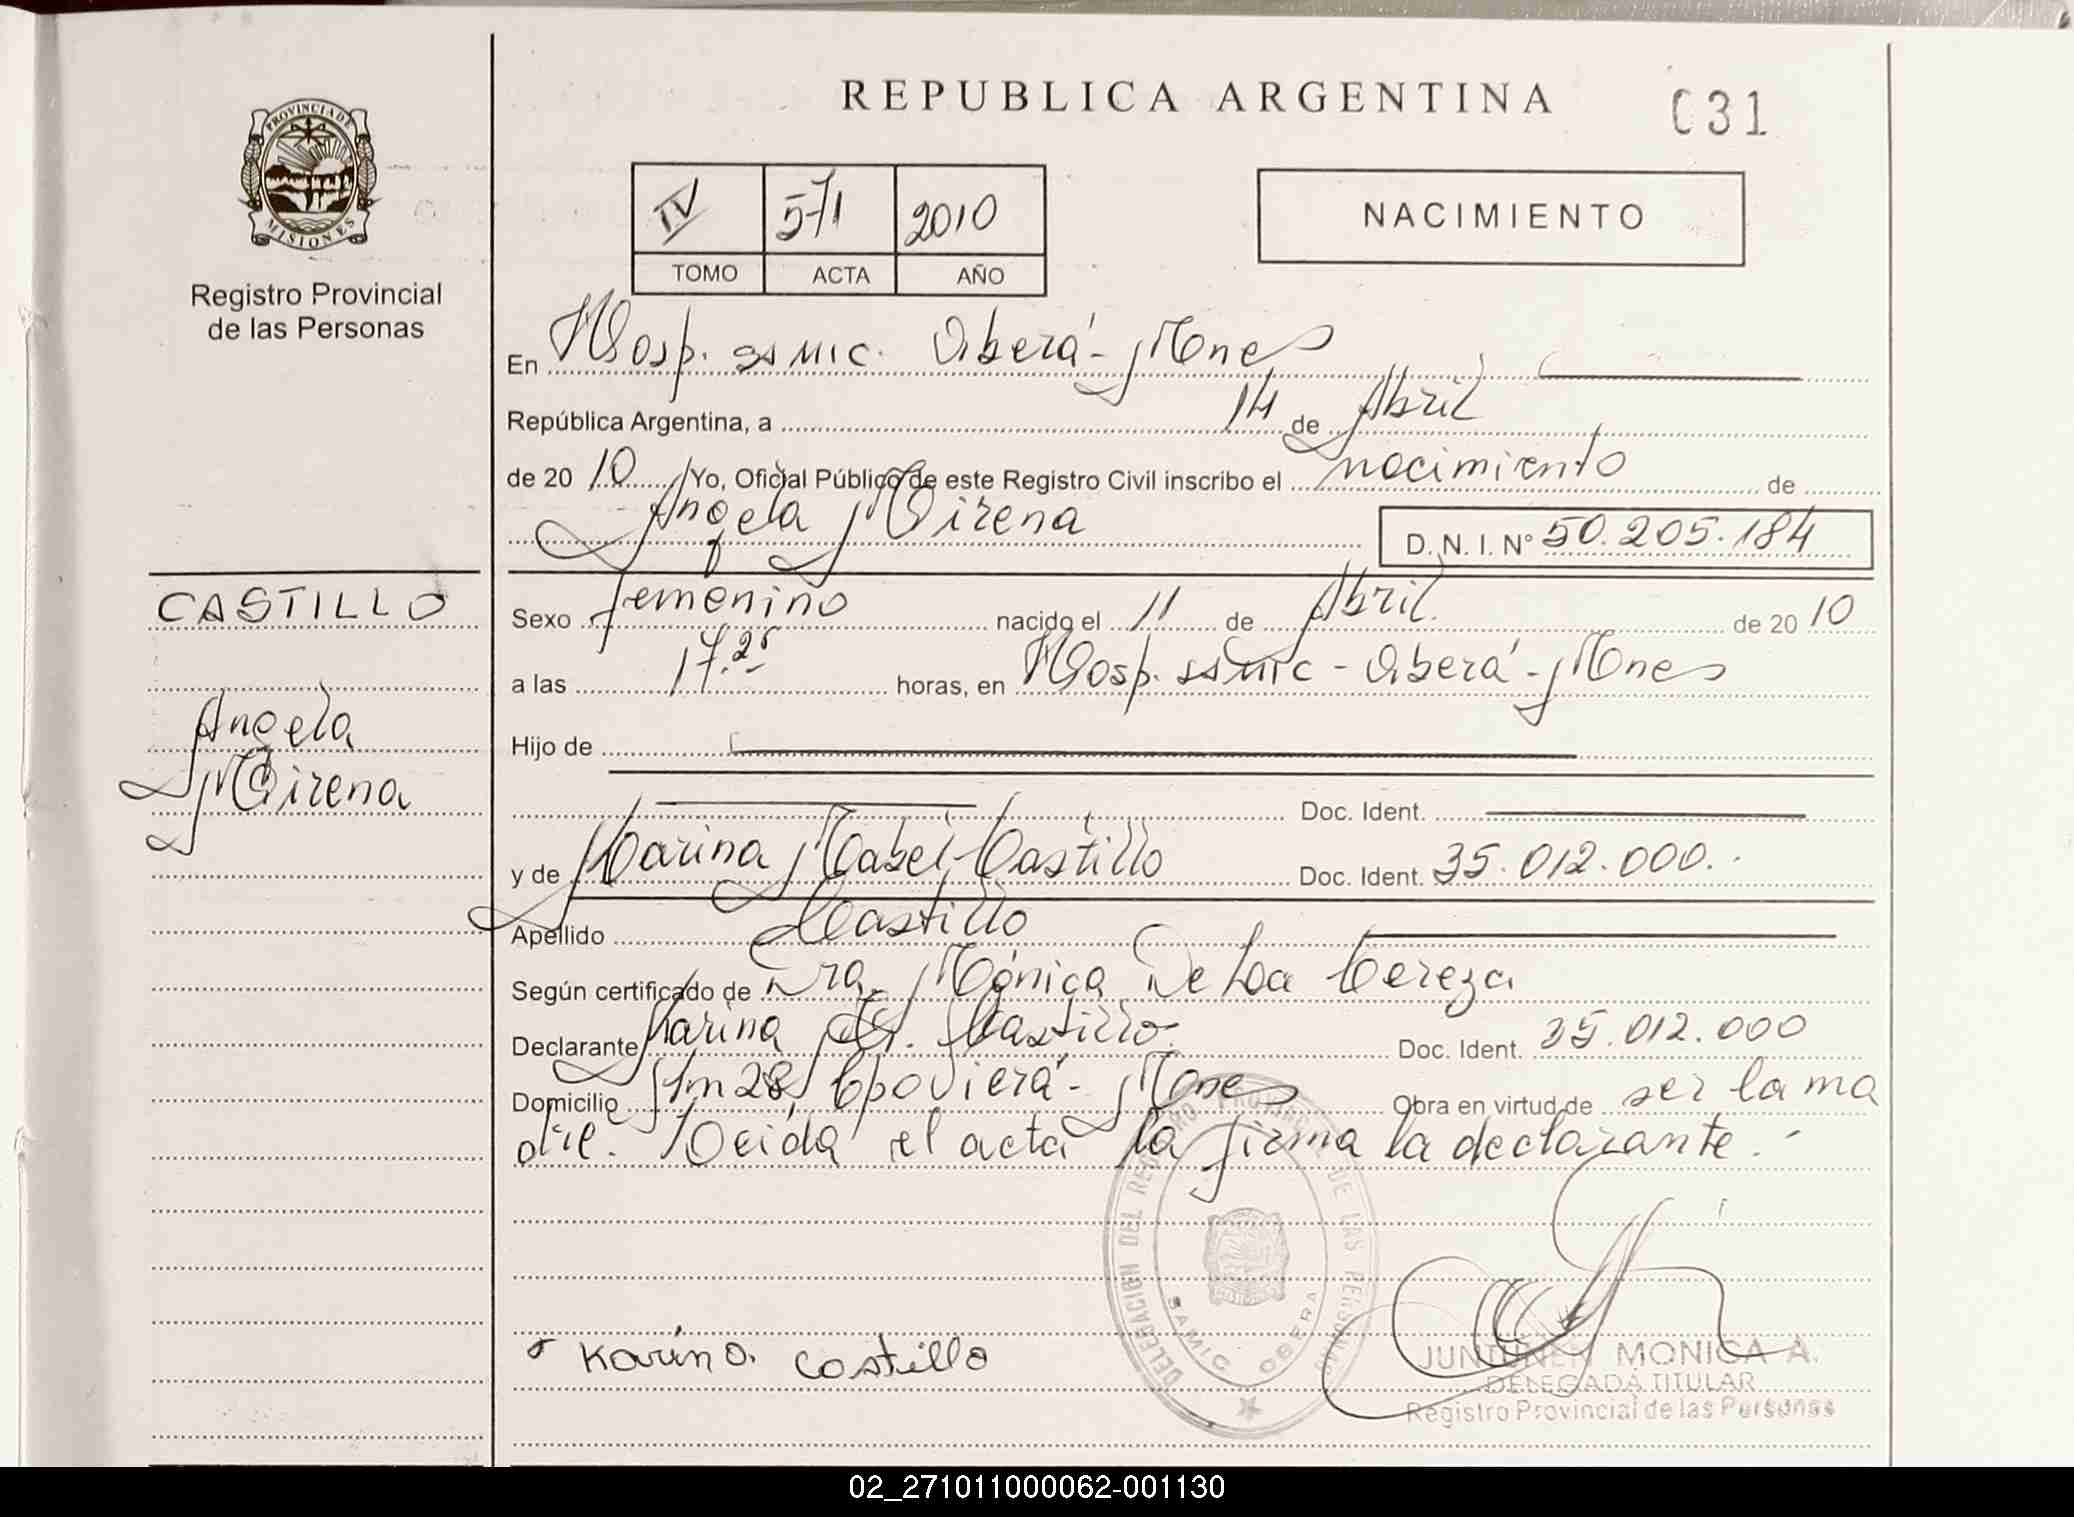 REPUBLICA ARGENTINA
031
PROVINCIA DE
MISIONES
Registro Provincial
de las Personas
IV 571 2010
TOMO ACTA AÑO
NACIMIENTO
En Hosp. SAMIC. Oberá - Mnes
República Argentina, a 14 de Abril
de 20 10 Yo, Oficial Público de este Registro Civil inscribo el nacimiento de
Angela Mirena
D.N.I. N° 50.205.184
CASTILLO
Angela
Mirena
Sexo femenino nacido el 11 de Abril de 20 10
a las 17.25 horas, en Hosp. SAMIC - Oberá - Mnes
Hijo de
Doc. Ident.
y de Karina Mabel Castillo Doc. Ident. 35.012.000.
Apellido Castillo
Según certificado de Dra. Mónica De La Cereza
Declarante Karina M. Castillo. Doc. Ident. 35.012.000
Domicilio Km 28, Cpo Vierá - Mnes Obra en virtud de ser la ma
dre. Leída el acta la firma la declarante. -
Karina Castillo
DELEGACION DEL REGISTRO PROVINCIAL DE LAS PERSONAS
SAMIC OBERA
JUNTUNEN MONICA A.
DELEGADA TITULAR
Registro Provincial de las Personas
02_271011000062-001130